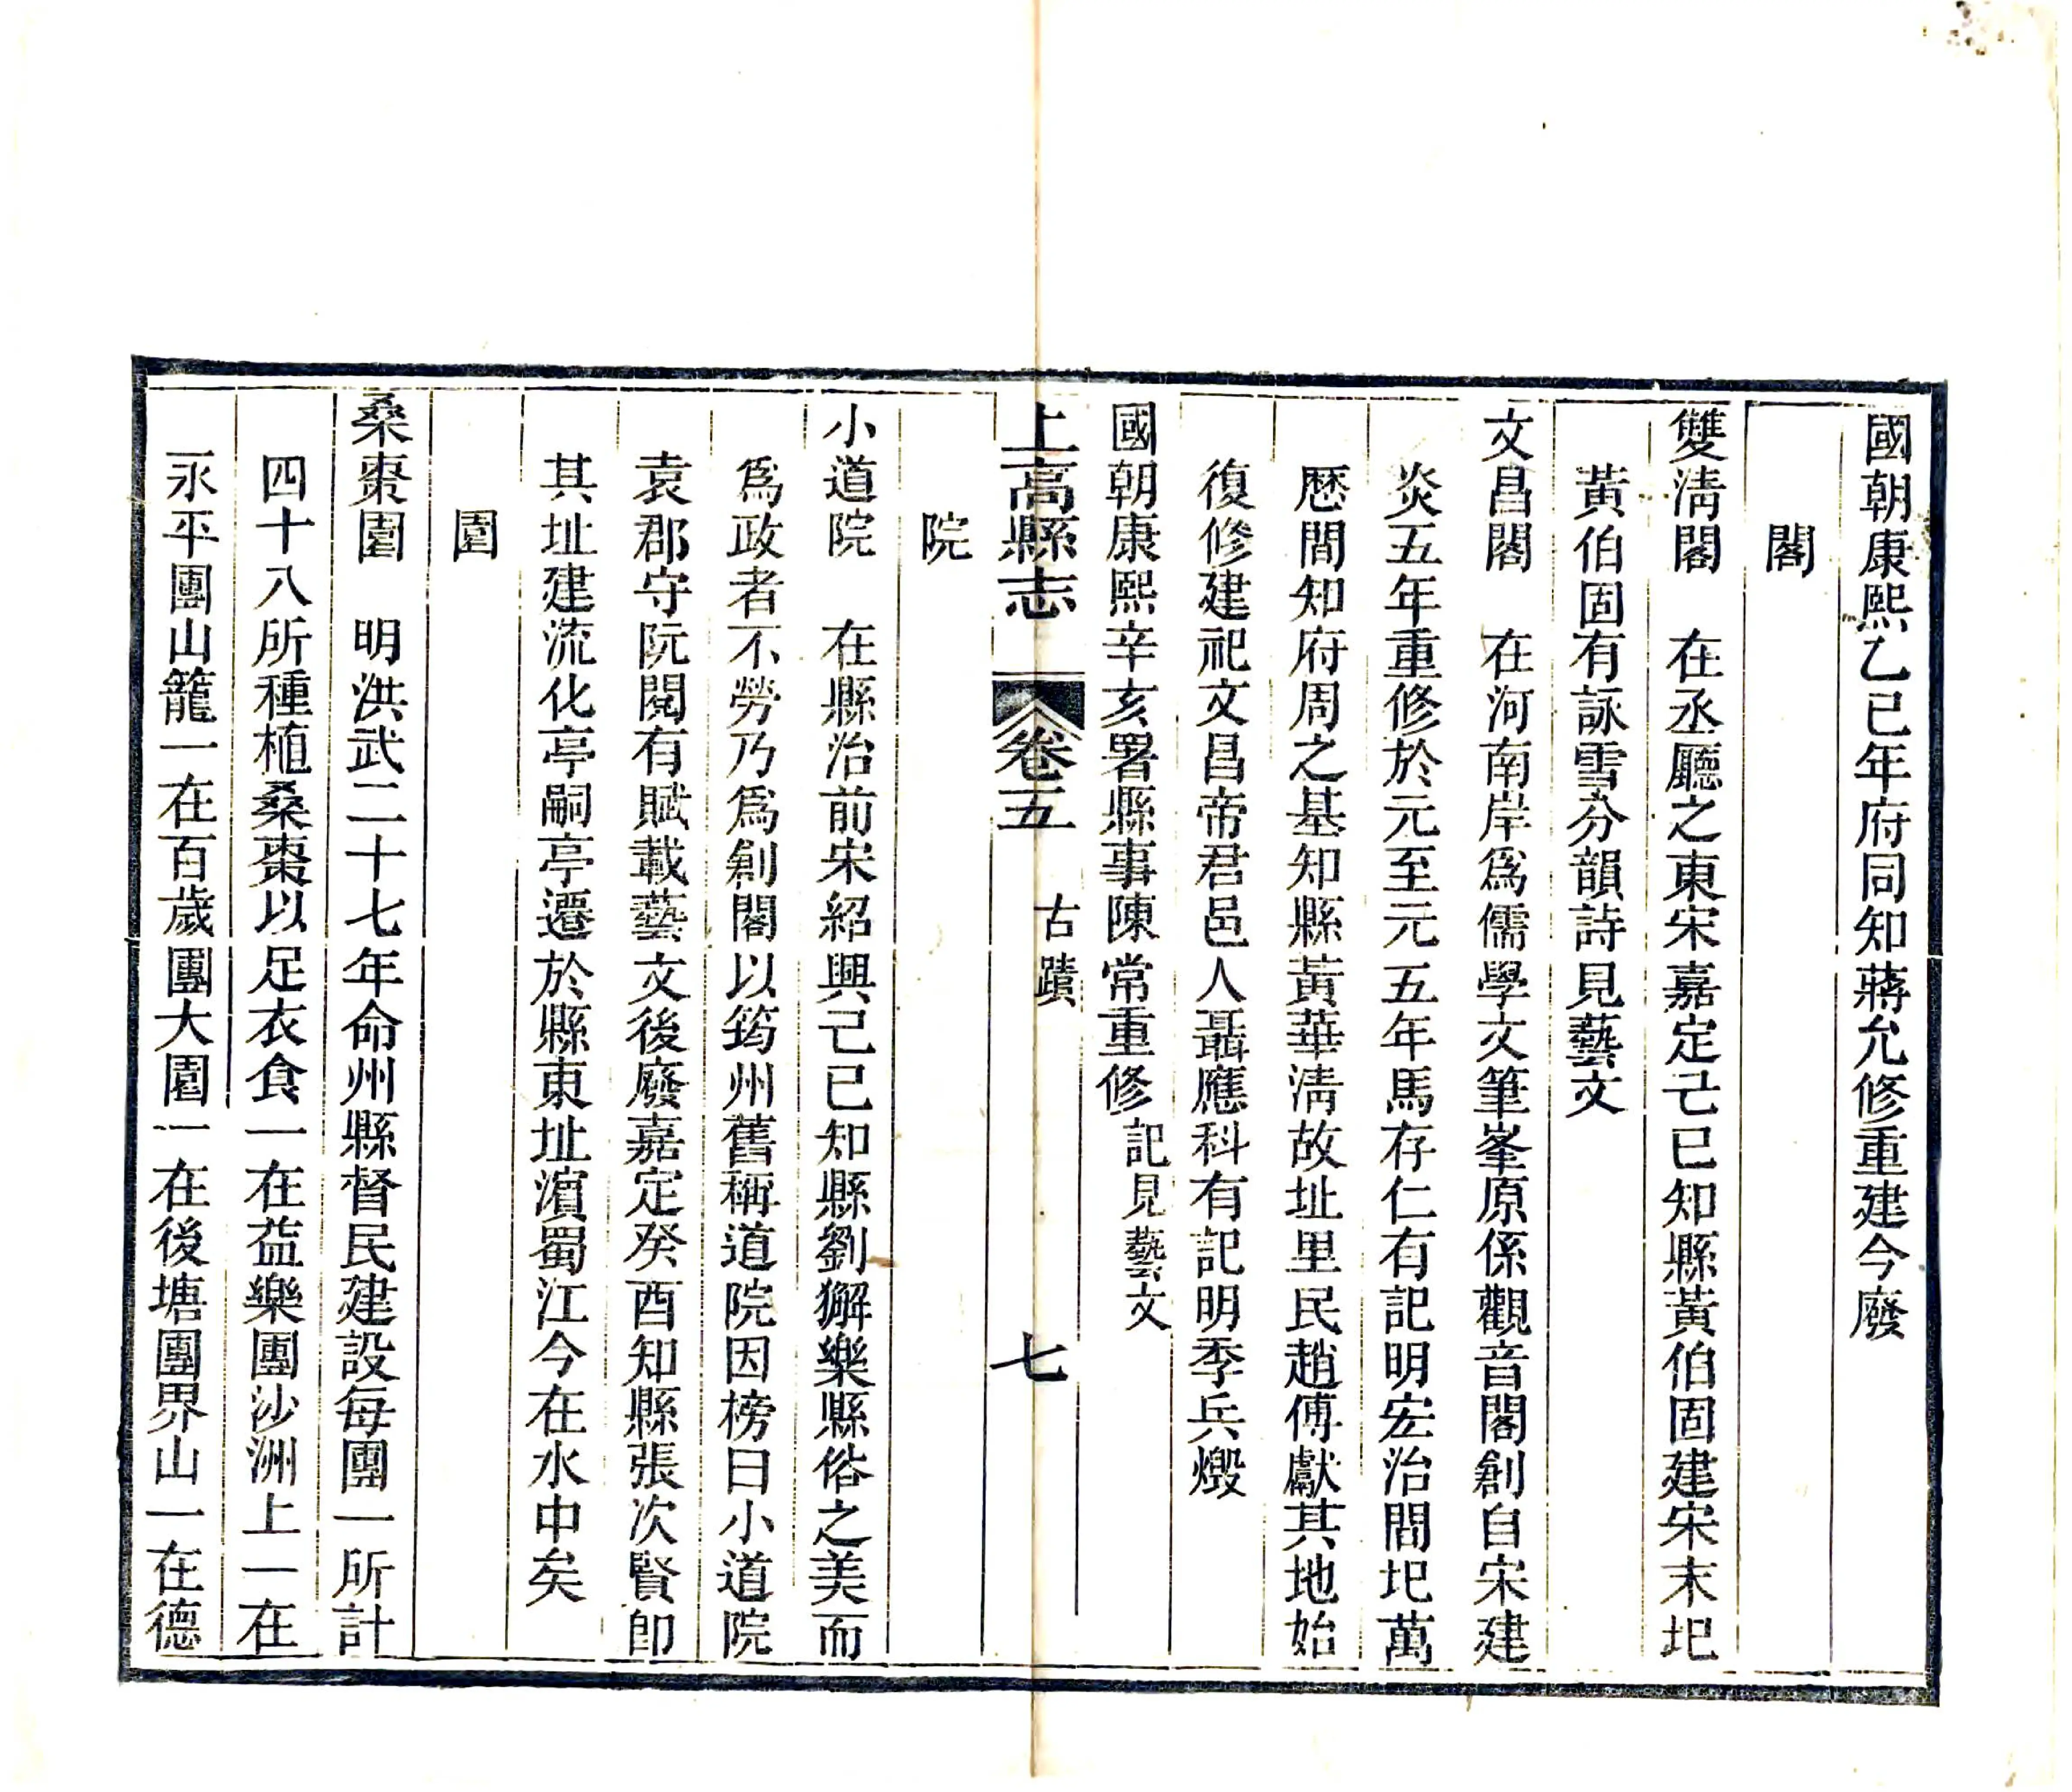 國朝康熙乙巳年府同知蔣允修重建今廢
閣
雙淸閣　在丞廳之東宋嘉定己巳知縣黃伯固建宋末圮
黃伯固有詠雪分韻詩見藝文
文昌閣　在河南岸爲儒學文筆峯原係觀音閣創自宋建
炎五年重修於元至元五年馬存仁有記明宏治間圮萬
歷間知府周之基知縣黃華淸故址里民趙傅獻其地始
復修建祀文昌帝君邑人聶應科有記明季兵燬
國朝康熙辛亥署縣事陳常重修記見藝文
上高縣志　卷五　古蹟　七
院
小道院　在縣治前宋紹興己巳知縣劉獬樂縣俗之美而
爲政者不勞乃爲創閣以筠州舊稱道院因榜曰小道院
袁郡守阮閱有賦載藝文後廢嘉定癸酉知縣張次賢卽
其址建流化亭嗣亭遷於縣東址濵蜀江今在水中矣
園
桑棗園　明洪武二十七年命州縣督民建設每團一所計
四十八所種植桑棗以足衣食一在益樂團沙洲上一在
永平團山籠一在百歲團大園一在後塘團界山一在德